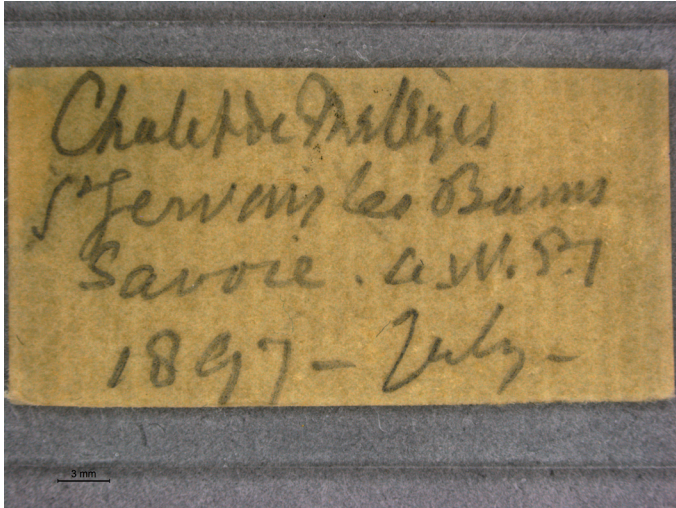 Chalet de Mélèzes
St Gervais les Bains
Savoie.
1897 - July -
3 mm